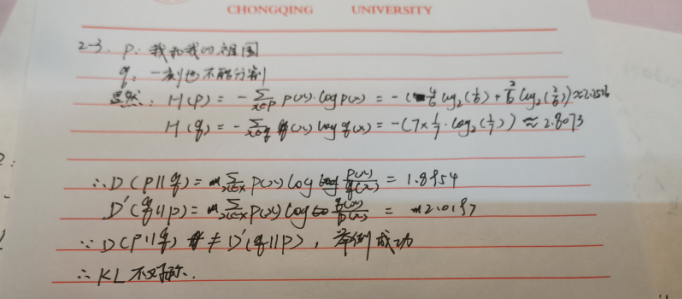 CHONGQING UNIVERSITY
2-3. P: 我和我的祖国
q: 一刻也不能分割
显然: H(p) = -∑x∈p p(x)·log p(x) = -(4/6 log₂(1/6) + 2/6 log₂(2/6)) ≈ 2.2516
H(q) = -∑x∈q q(x) log q(x) = -(7×1/7·log₂(1/7)) ≈ 2.8073
∴ D(p||q) = ∑x∈x p(x) log p(x)/q(x) = 1.8954
D'(q||p) = ∑x∈x p(x) log q(x)/p(x) = 2.0197
∵ D(p||q) ≠ D'(q||p), 举例成功
∴ KL不对称.